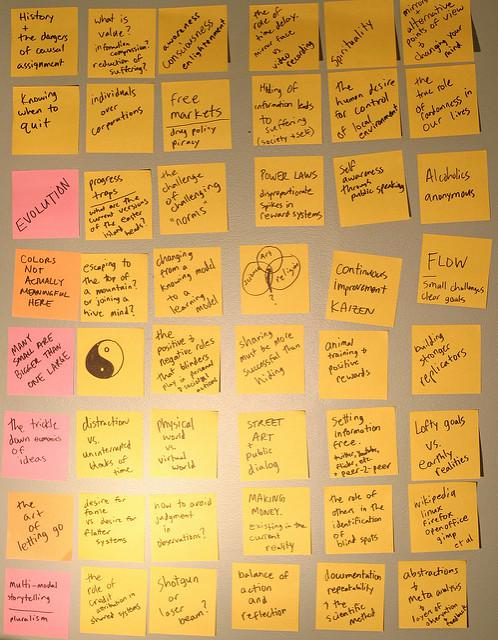 History
+
the dangers
of causal
assignment
what is
value?
information
compression?
reduction of
suffering?
awareness
consciousness
enlightenment
the role of
time delay.
mirror face
video
recording
Spirituality
mirrors
+
alternative
points of view
+
changing your
mind
Knowing
when to
quit
individuals
over
corporations
free
markets
drug policy
piracy
Hiding of
information leads
to
suffering
(society + self)
the
human desire
for control
of local
environment
the
true role
of
randomness in
Our lives
EVOLUTION
progress
traps
what are the
current versions
of the easter
island heads?
the
challenge
of
challenging
"norms"
POWER LAWS
disproportionate
spikes in
reward systems
Self
awareness
through
public speaking
Alcoholics
anonymous
COLORS
NOT
ACTUALLY
MEANINGFUL
HERE
escaping to
the top of
a mountain?
or joining a
hive mind?
changing
from a
knowing model
to a
learning model
art
science
religion
?
Continuous
improvement
KAIZEN
FLOW
small challenges
clear goals
MANY
SMALL ARE
BIGGER THAN
ONE LARGE
the
positive +
negative roles
that binders
play in personal
+ societal
actions
sharing
must be more
successful than
hiding
animal
training +
positive
rewards
building
stronger
replicators
the trickle
down economics
of
ideas
distraction
vs.
uninterrupted
blocks of
time
physical
world
vs
virtual
world
STREET
ART
+
public
dialog
Setting
information
free.
twitter, youtube,
flickr, etc
+ peer-2-peer
Lofty goals
vs.
earthly
realities
the
art
of
letting go
desire for
fame
vs desire for
flatter
systems
how to avoid
judgment
in
observations?
MAKING
MONEY.
existing in the
current
reality
the role of
others in the
identification
of
blind spots
wikipedia
linux
firefox
openoffice
gimp
et al
multi-modal
storytelling
pluralism
the
role of
credit
attribution in
shared systems
Shotgun
or
laser
beam?
balance of
action
and
reflection
documentation
repeatability
+ the
scientific
method
abstractions
+
meta analysis
+
layers of
observation
+ feedback